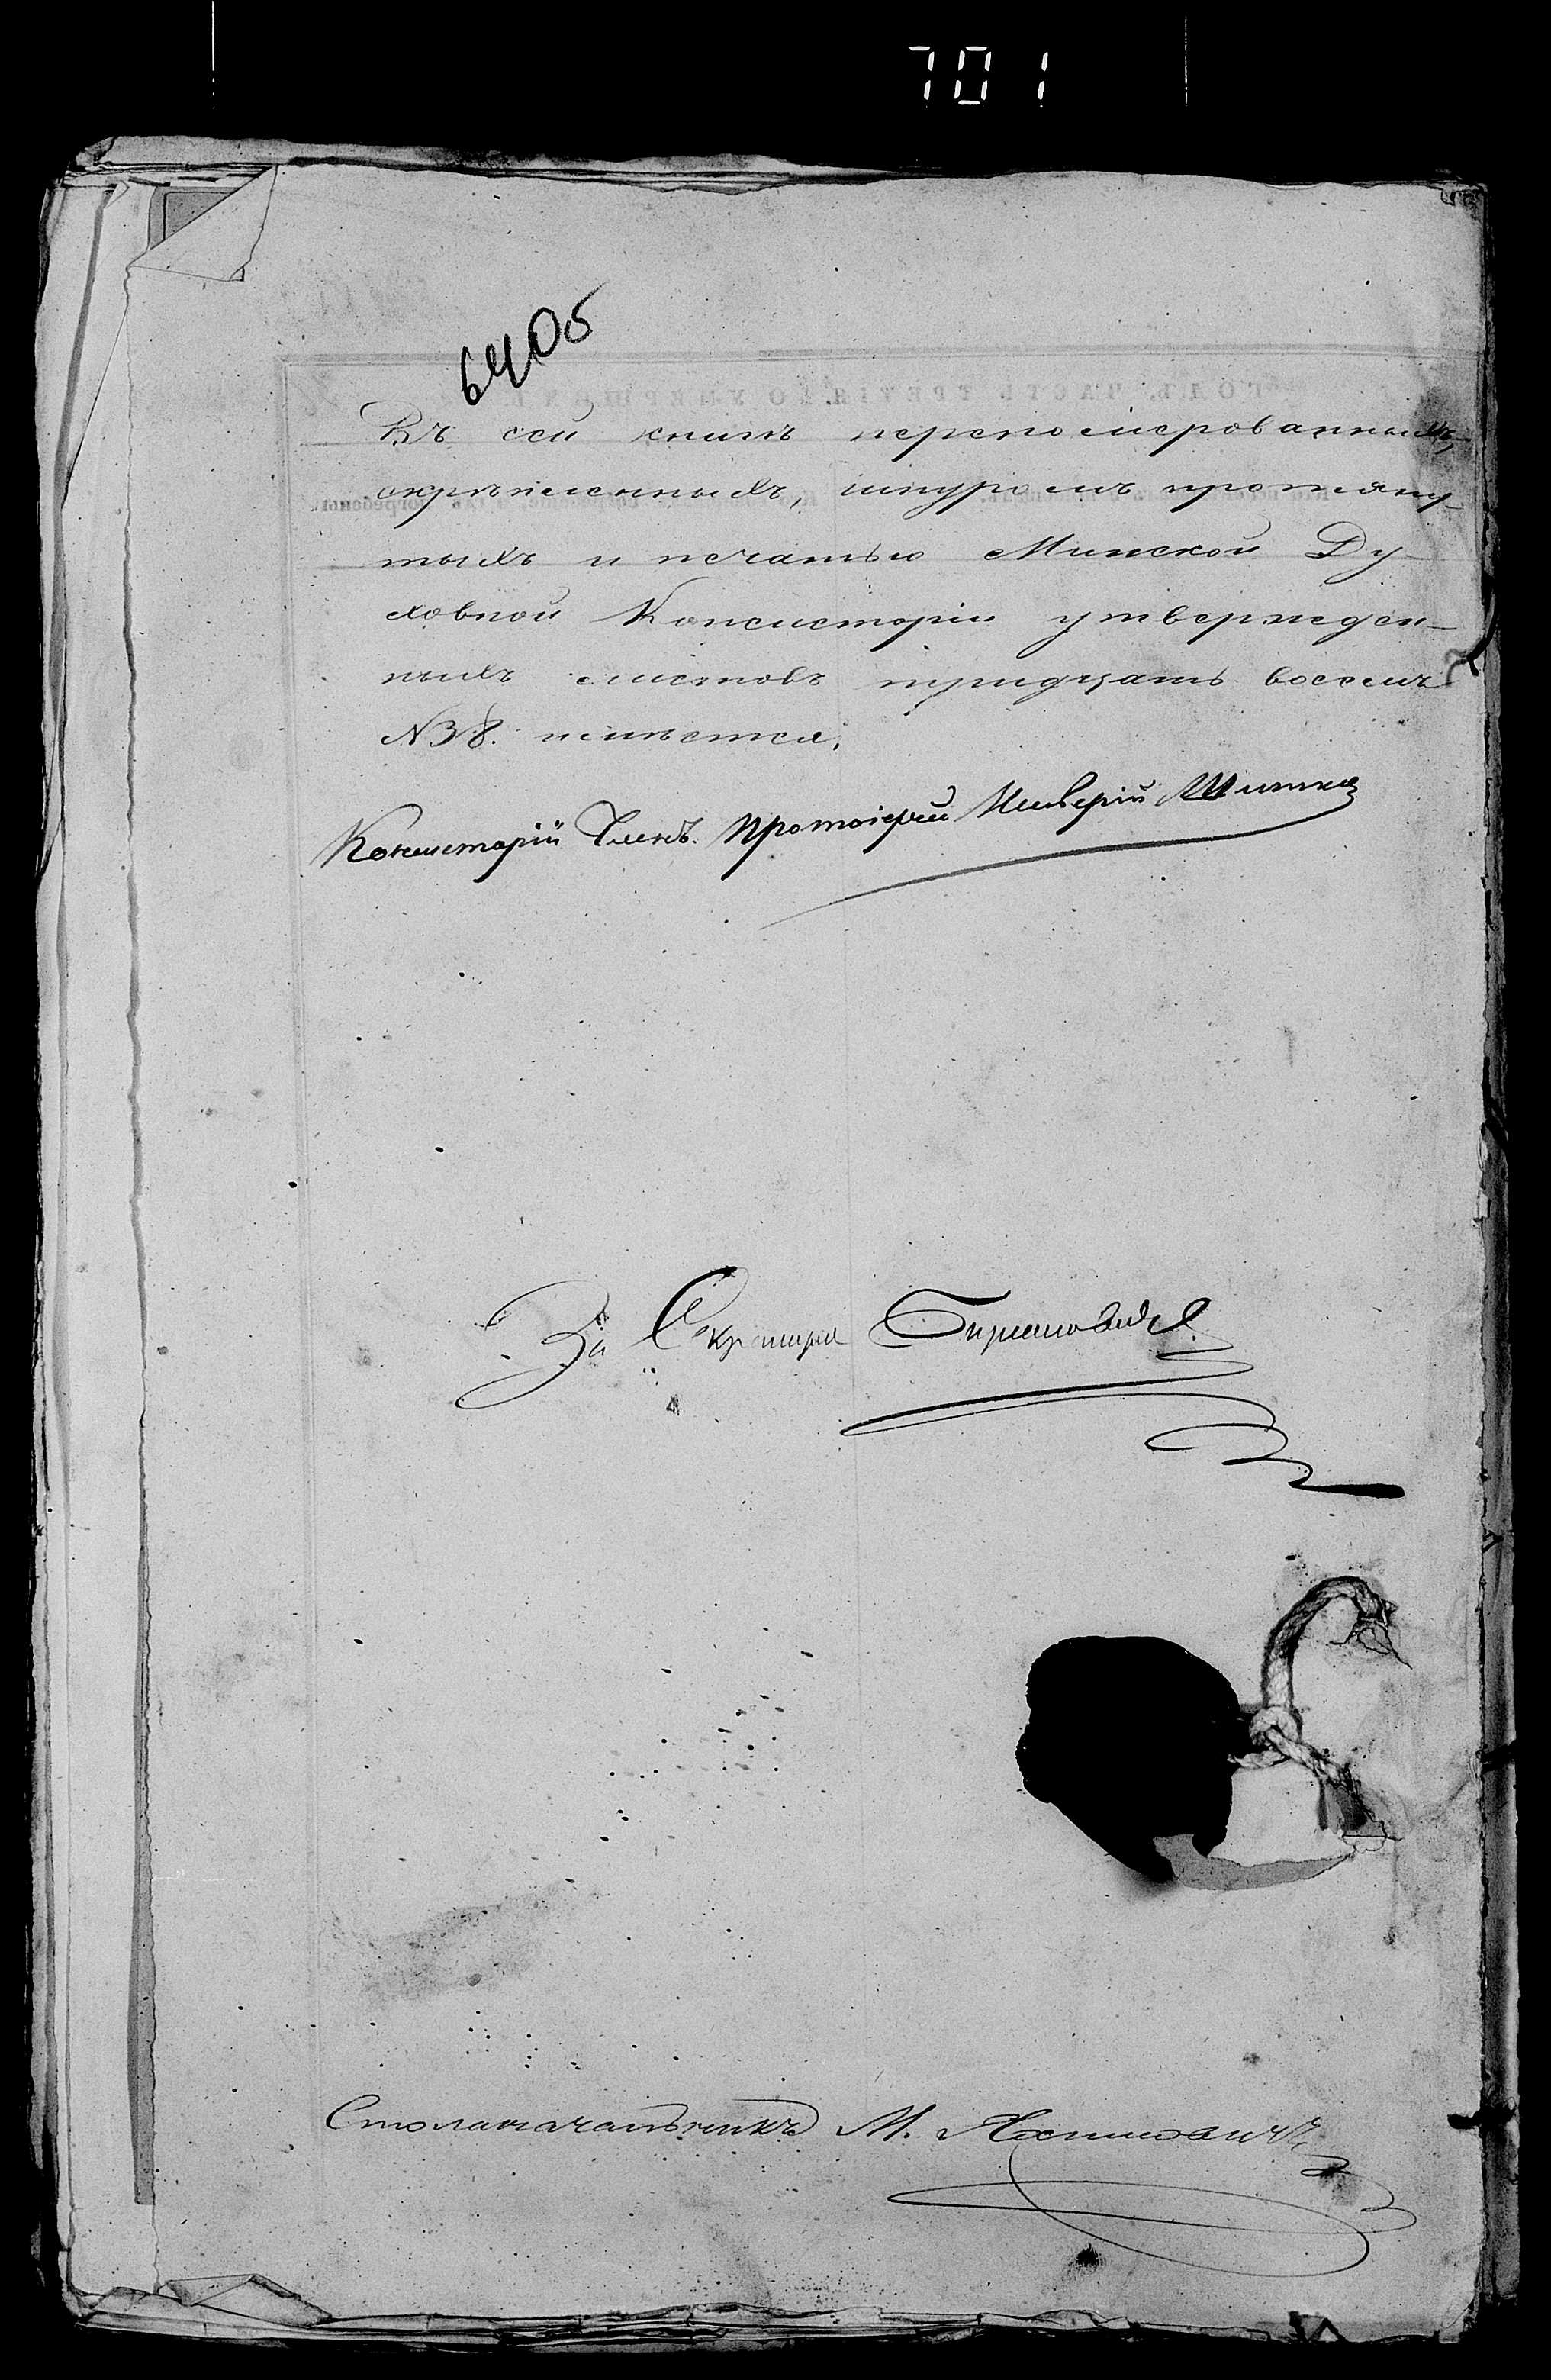 701
640б
Въ сей книгѣ перенумерованныхъ,
скрѣпленныхъ, шнуромъ протяну-
тыхъ и печатью Минской Ду-
ховной Консисторіи утвержден-
ныхъ листовъ тридцать восемь
N 38. имѣется.
Консисторіи Членъ. Протоіерей
За Секретаря
Столоначальникъ М.